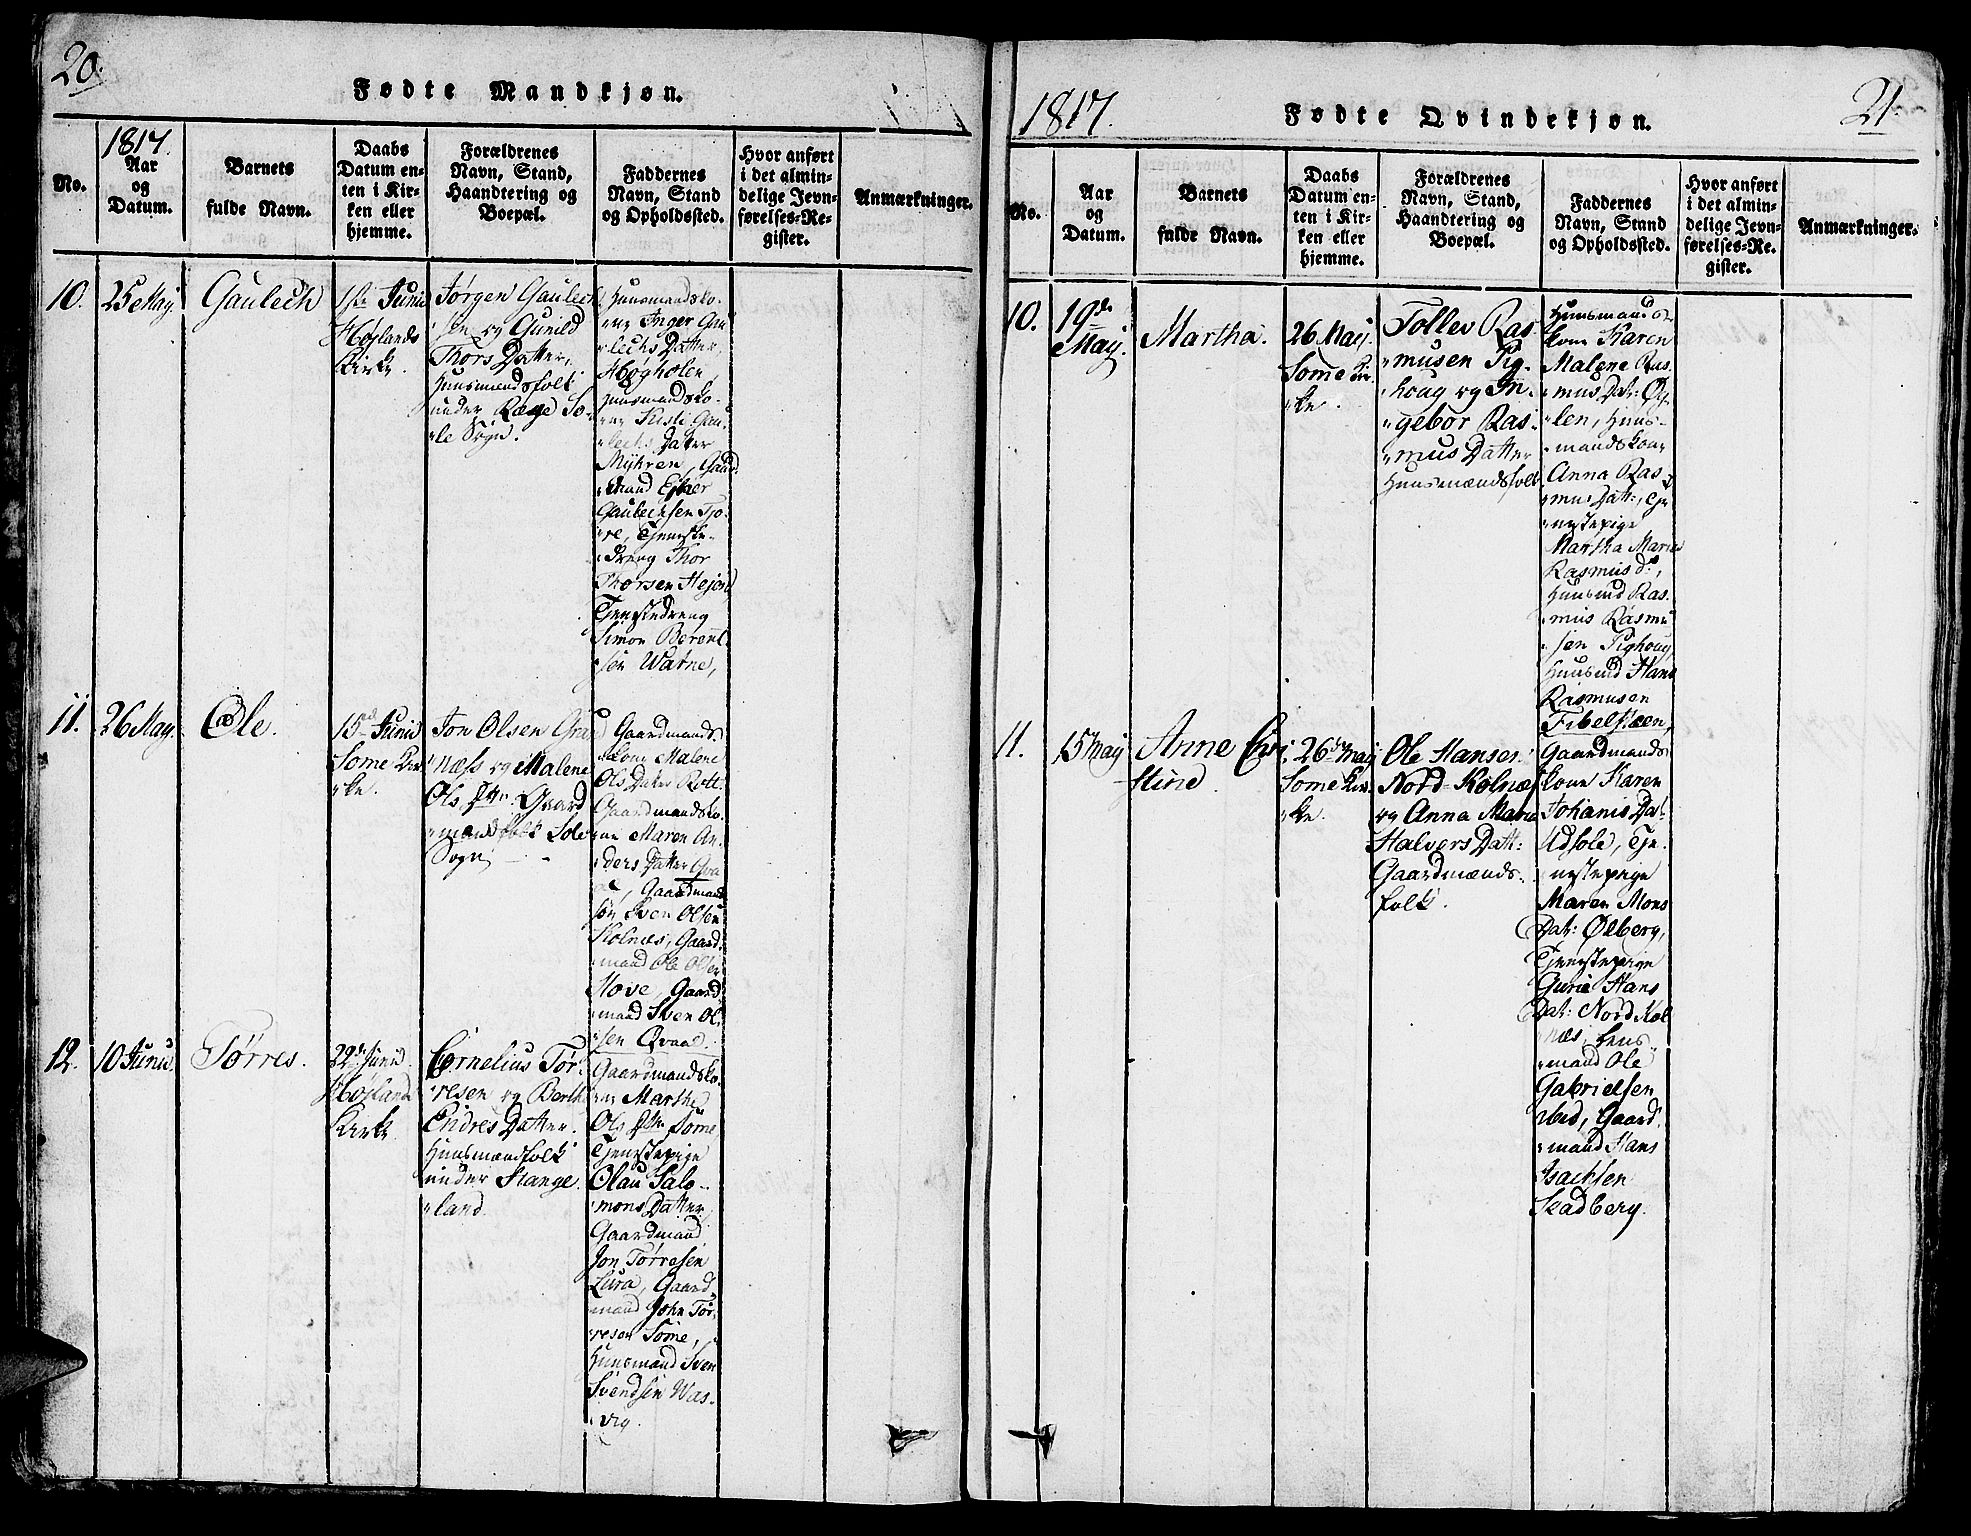 20.
Fødte Mandkjøn.
No.
1817.
Aar
og
Datum.
Barnets
fulde Navn.
Daabs
Datum en-
ten i Kir-
ken eller
hjemme.
Forældrenes
Navn, Stand,
Haandtering og
Boepæl.
Faddernes
Navn, Stand
og Opholdssted.
Hvor anført
i det almin-
delige Jevn-
førelses-Re-
gister.
Anmærkninger.
10.
25 May.
Gaulech
1ste Junii
Høylands
Kirke.
Jørgen Gaulech
sen og Gunild
Thors Datter,
Huusmandsfolk
under Ræge So-
le Sogn.
Huusmandsko-
ne Inger Gau
lechs Datter,
Hogholen,
Huusmandsko-
ne Kisti Gau
lechs Datter
Myhren, Gaard
mand Ejber
Gaulechsen Tjo-
re, Tjeneste-
dreng Thor
Thorsen
Tjenstedreng
Simon Berent
sen Watne,
11.
26 May.
Ole.
15de Junii
Some Kir
ke.
Jon Olsen Gra
næss og Malene
Ols Dtr: Gaard
mandsfolk Sole
Sogn
Gaardmands
kone Malene
Ols Datter Rott.
Gaardmandsko.
ne Maren An
ders Datter
Gaardmand
søn Sven Olsen
Kolnæs, Gaard
mand Ole Olsen
Hove, Gaard
mand Sven Ol
sen Qvaal.
12.
10 Junii.
Tørres.
22de Junii
Høyland
Kirke
Cornelius Tør
resen og Berthe
Endres Datter.
Huusmandfolk
under Stange
land
Gaardmandsko
ne Marthe
Ols Dtr Some,
Tjenstepige
Olau Salo-
mons Datter
Gaardmand
Jon Tørresen
Lura, Gaard
mand John Tør
resen Some,
Huusmand Sven
Svendsen Was-
vig.
1817.
Fødte Qvindekjøn.
21.
No.
Aar
og
Datum.
Barnets
fulde Navn.
Daabs
Datum en-
ten i Kir-
ken eller
hjemme.
Forældrenes
Navn, Stand,
Haandtering og
Boepæl.
Faddernes
Navn, Stand
og Opholdssted.
Hvor anført
i det almin-
delige Jevn-
førelses-Re-
gister.
Anmærkninger.
10.
19de
May.
Martha.
26 May.
Some Kir
ke.
Tollev Ras
musen Pig
houg og In
gebor Ras
mus Datter
Huusmændsfolk
Huusmands
kone Karen
Malene Ras
mus Dat: Øy
len, Huus-
mandskone
Anna Ras
mus Datt:, Tje
nestepige
Martha Marie
Rasmus d:,
Huusmd Ras.
mus Rasmu
sen Pighoug
Huusmd Hans
Rasmusen
Fibelsteen,
11.
15 May
Anne Chri
stine.
26de May
Some Kir
ke.
Ole Hansen
Nord-Kolnæs
og Anna Marie
Halvers Datt:
Gaardmænds
folk.
Gaardmands
kone Karen
Johanis Dat:
Udsole, Tje
nestepige
Maren Mons
Dat: Ølberg,
Tjenstepige
Gurie Hans
Dat: Nord Kol
næs, Lens
mand Ole
Gabrielsen
ibid, Gaard
mand Hans
Isachsen
Scadberg.